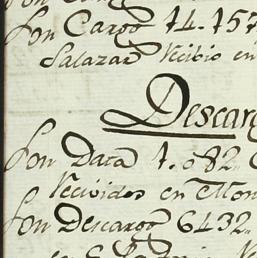 Son Cargo 14.157
Salazar Recibio en
Descarg
Son Data 1.082
Recividos en Mon
Son Descargo 6432.